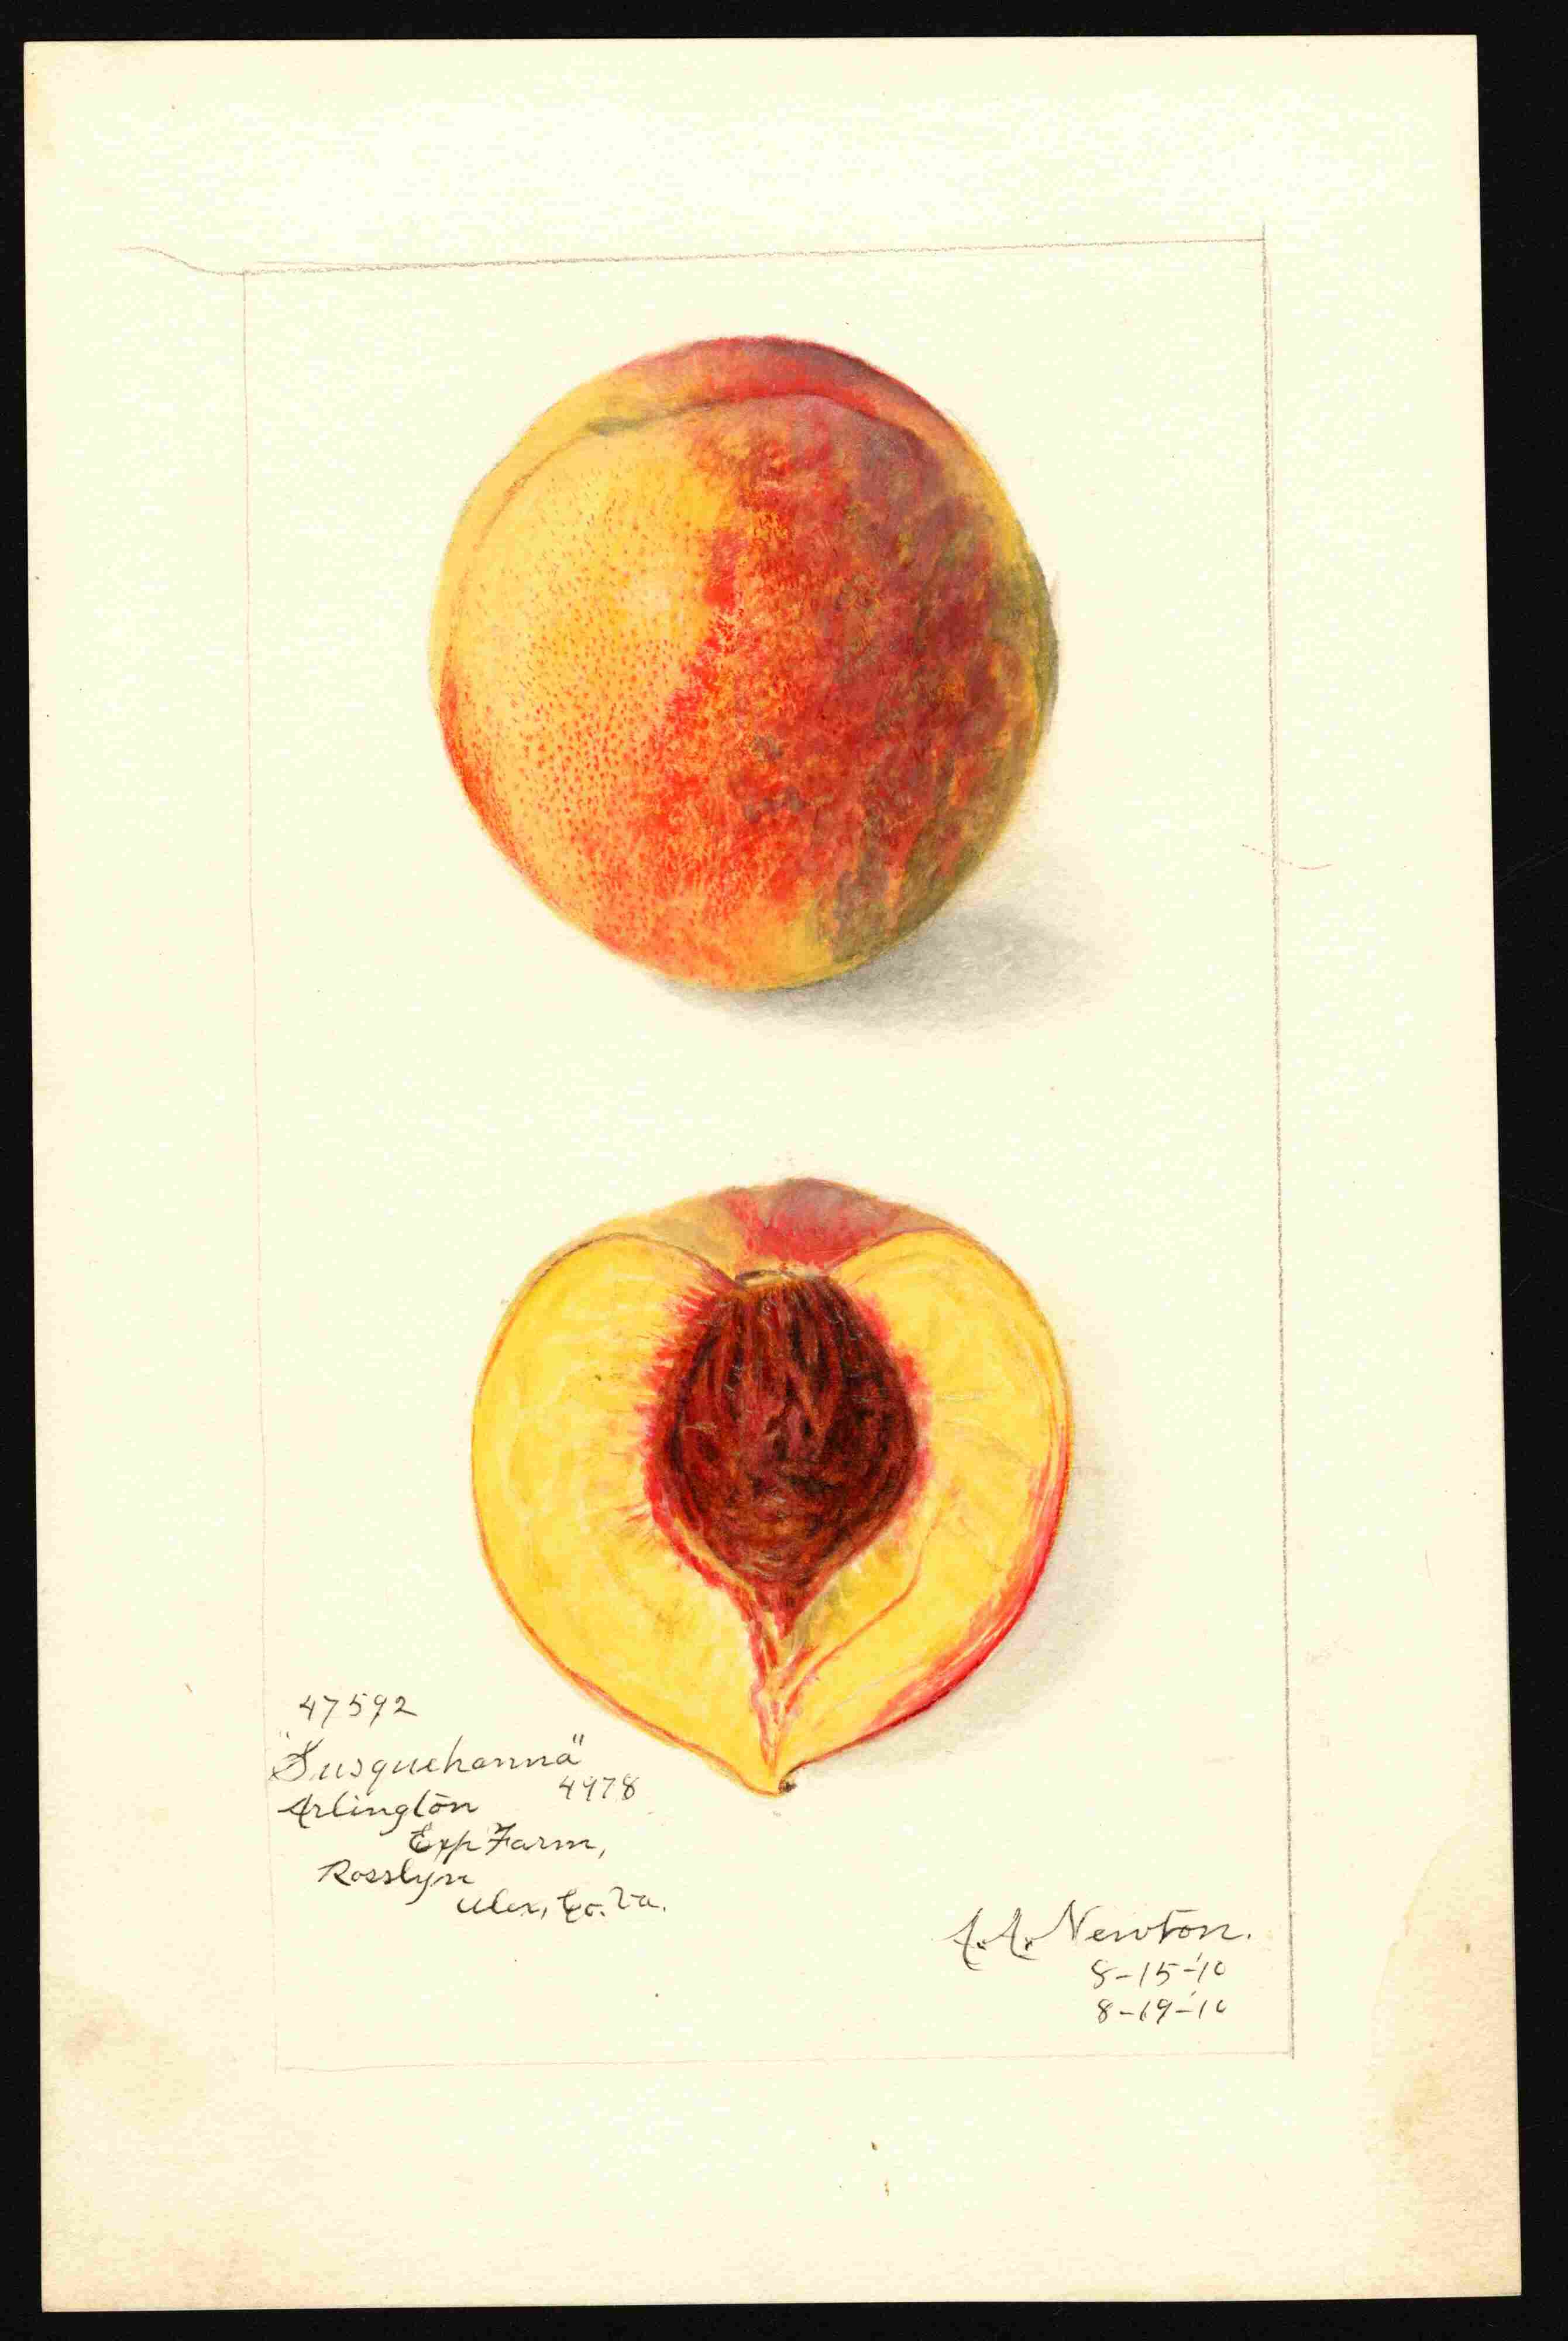 47592
"Susquehanna"
4978
Arlington
Exp Farm,
Rosslyn
Alex, Co. Va.
A.A. Newton.
8-15-'10
8-19-'10